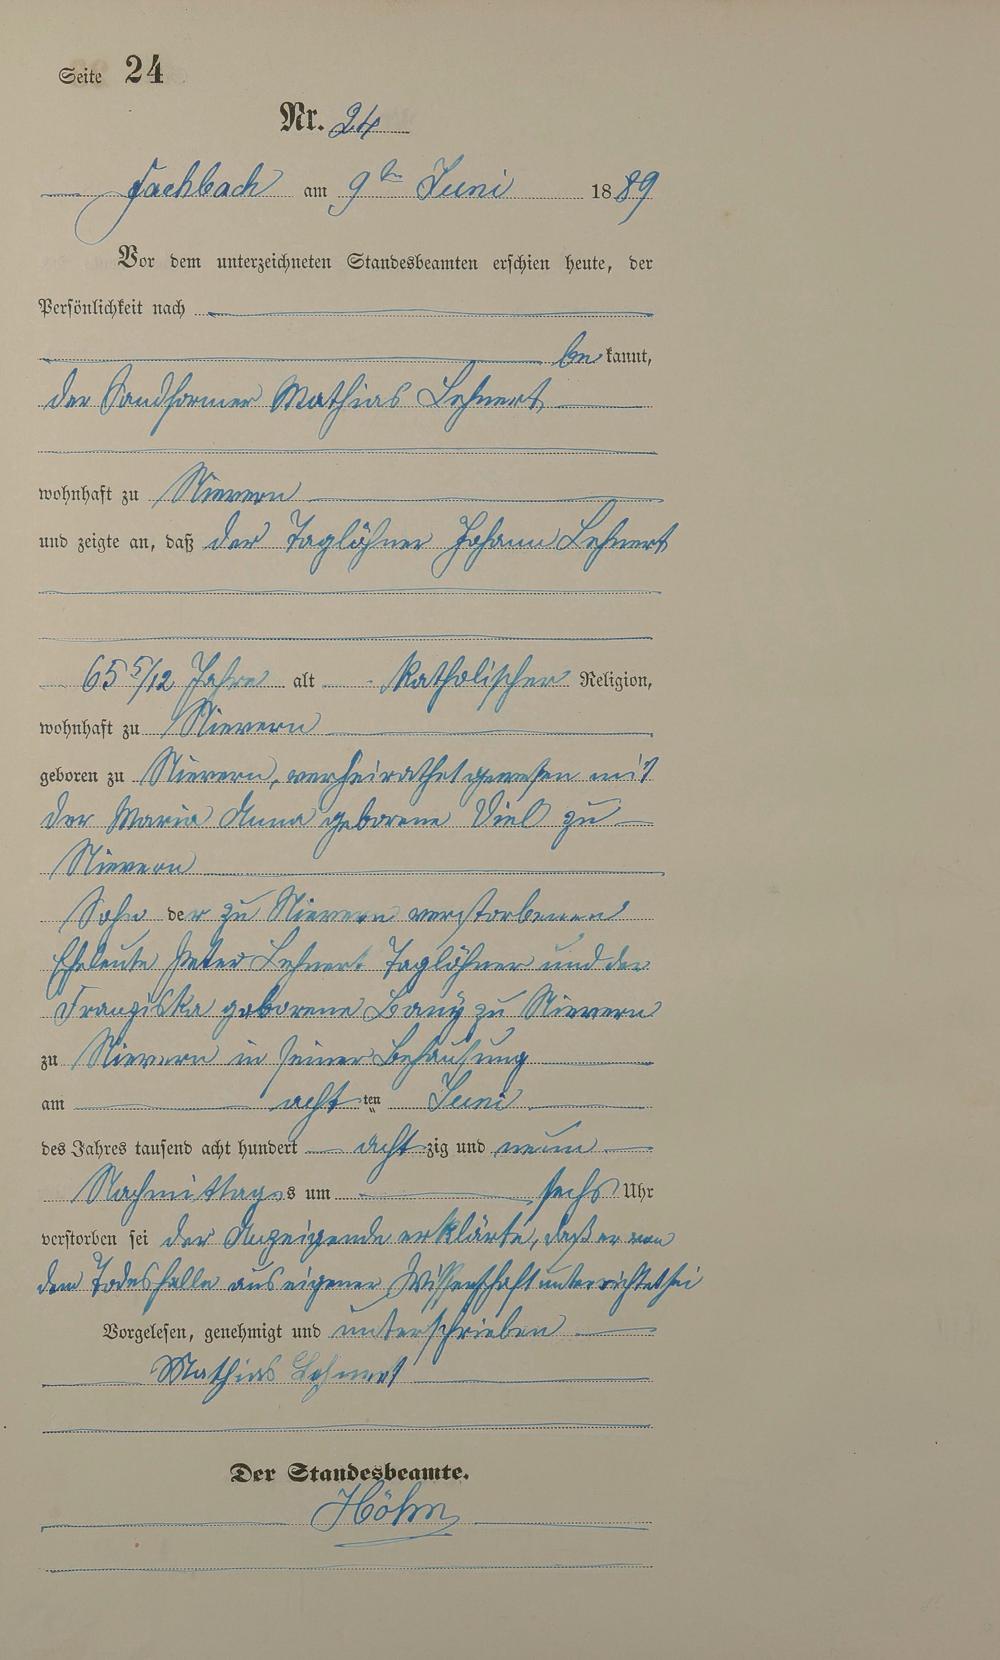 Seite 24
Nr. 24
Fachbach am 9ten Juni 1889
Vor dem unterzeichneten Standesbeamten erschien heute, der
Persönlichkeit nach
be kannt,
der Sandformer Mathias Lehnert
wohnhaft zu Nievern
und zeigte an, daß der Taglöhner Johann Lehnert
65 5/12 Jahre alt katholischer Religion,
wohnhaft zu Nievern
geboren zu Nievern, verheirathet gewesen mit
der Maria Anna geborene Diel zu
Nievern
Sohn der zu Nievern verstorbenen
Eheleute Peter Lehnert Taglöhner und der
Franziska geborene zu Nievern
zu Nievern in seiner Behausung
am acht ten Juni
des Jahres tausend acht hundert acht zig und neun
Nachmittags um sechs Uhr
verstorben sei der Anzeigende erklärte, daß er von
dem Todesfalle aus eigener Wissenschaft unterrichtet sei
Vorgelesen, genehmigt und unterschrieben
Mathias Lehnert
Der Standesbeamte.
Höhn